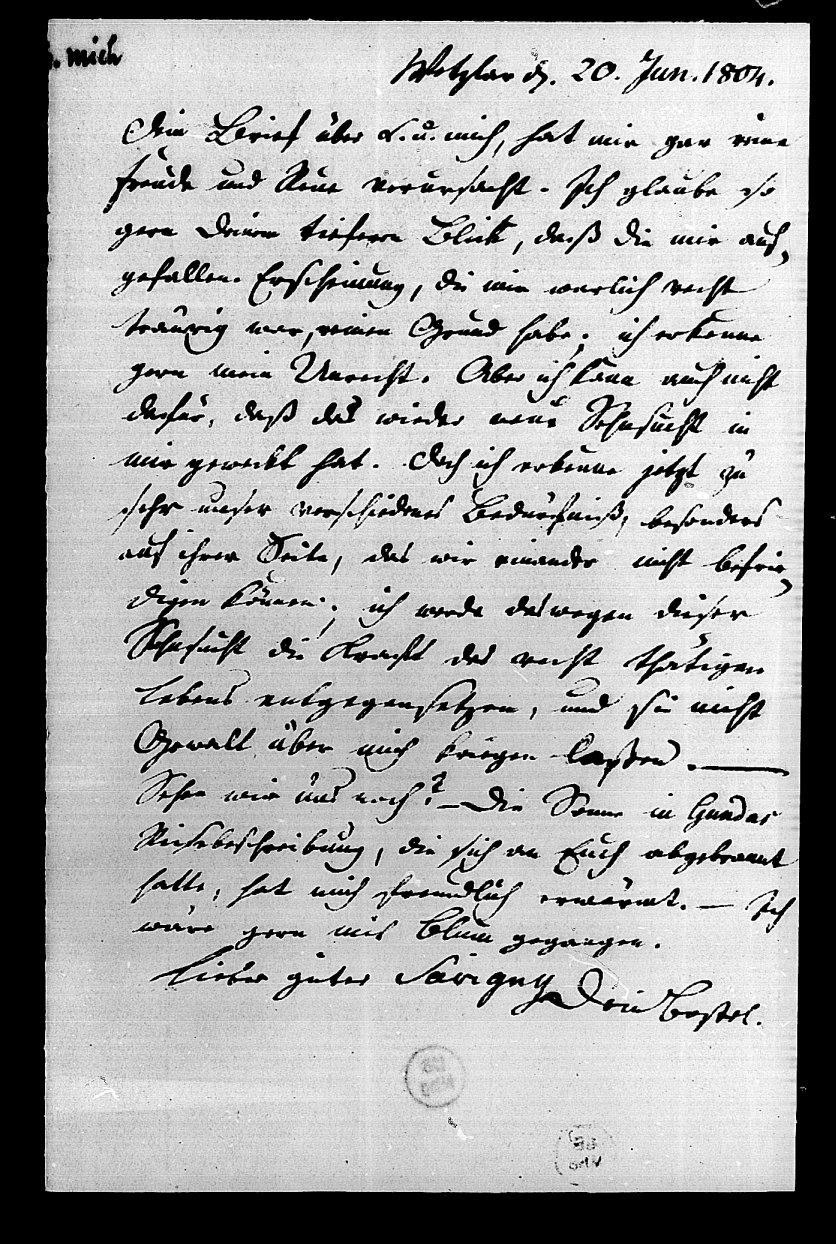 . mich
Wetzlar d. 20. Jun. 1804.
Dein Brief über L. u. mich, hat mir gar eine
Freude und Reue verursacht. Ich glaube so
gern Deinem tiefern Blick, daß die mir auf-
gefallene Erscheinung, die mir warlich recht
traurig war, einen Grund habe; ich erkenne
gern mein Unrecht. Aber ich kann auch nicht
dafür, daß das wieder neue Sehnsucht in
mir geweckt hat. Doch ich erkenne jetzt zu
sehr unser verschiednes Bedürfniß, besonders
auf ihrer Seite, das wir einander nicht befrie-
digen können; ich werde deswegen dieser
Sehnsucht die Kraft des recht thätigen
Lebens entgegensetzen, und sie nicht
Gewalt über mich kriegen laßen.
Sehen wir uns noch? – Die Sonne in Gundas
Reisebeschreibung, die sich an Euch abgebrannt
hatte, hat mich freundlich erwärmt. – Ich
wäre gern mit Blum gegangen.
Lieber guter Savigny
Dein Bostel.